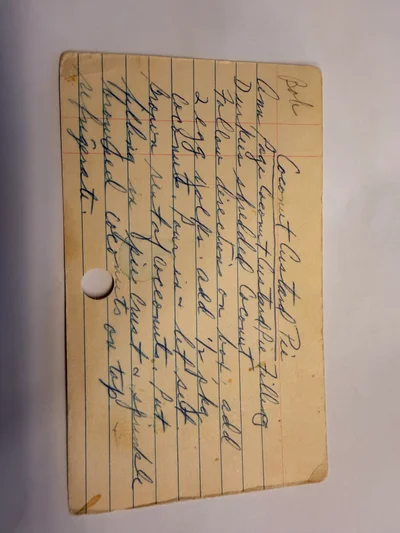 Bob
Coconut Custard Pie
Ann Page Coconut Custard Pie Filling
Durkee shredded Coconut
Follow directions on box, add
2 egg yolks. add 1/2 pkg
Coconut. Pour in & let set
Brown rest of coconut. Put
filling in pie crust & sprinkle
browned coconuts on top
refrigerate.